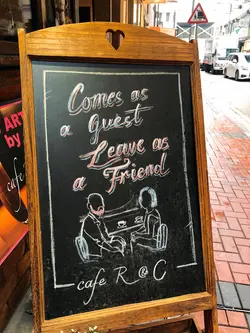 Comes as
a guest
Leave as
a Friend
cafe R @ C
ART
by
cafe